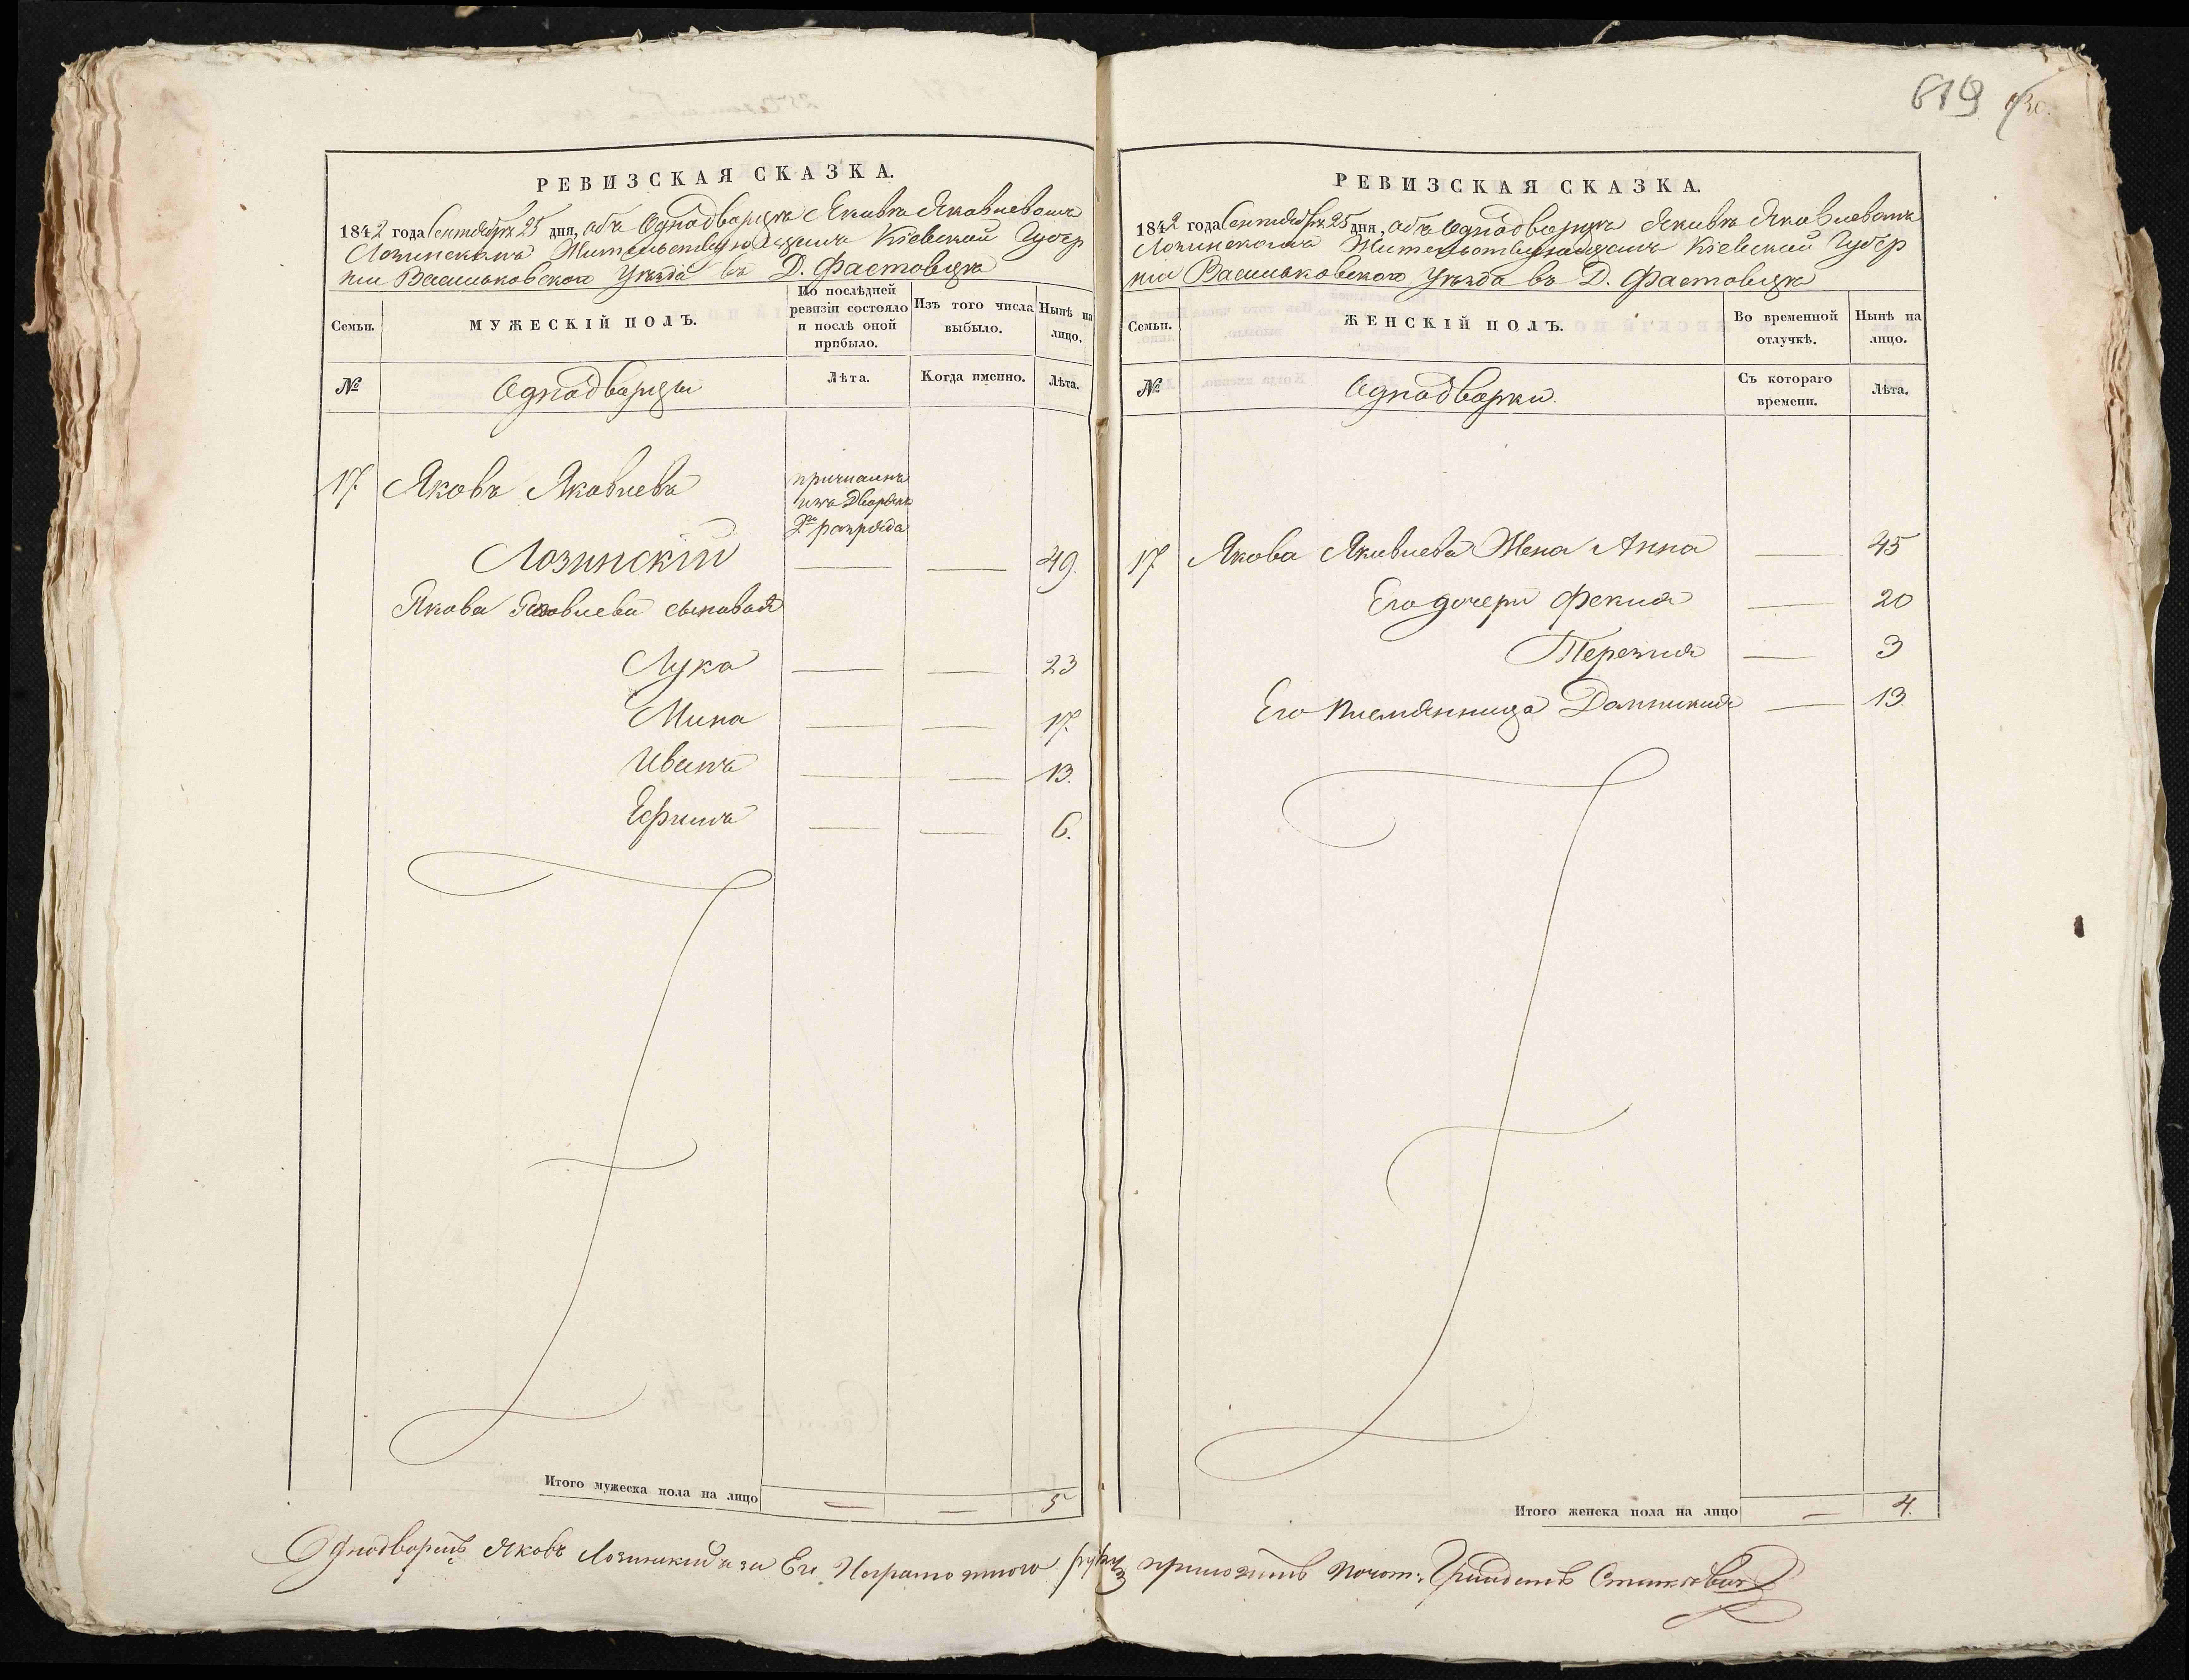 619
РЕВИЗСКАЯ СКАЗКА.
1842 года Сентября 25 дня, объ Однодворце Якове Яковлевомъ
Лозинскомъ Жительствующемъ Кіевской Губер
ніи Васильковскаго Уезда въ Д. Фастовце
Семьи.
МУЖЕСКІЙ ПОЛЪ.
По послѣдней ревизіи состояло и послѣ оной прибыло.
Изъ того числа выбыло.
Нынѣ на лицо.
№
Однодворцы
Лѣта.
Когда именно.
Лѣта.
17. Яковъ Яковлевъ
причисленъ
изъ Дворянъ
2го разряда
Лозинскій — — 49.
Якова Яковлева сыновья
Лука — — 23
Мина — — 17.
Иванъ — — 13.
Ефимъ — — 6.
Итого мужеска пола на лицо — — 5
РЕВИЗСКАЯ СКАЗКА.
1842 года Сентября 25 дня, объ Однодворце Якове Яковлевомъ
Лозинскомъ Жительствующемъ Кіевской Губер
ніи Васильковскаго Уезда въ Д. Фастовце
Семьи.
ЖЕНСКІЙ ПОЛЪ.
Во временной отлучкѣ.
Нынѣ на лицо.
№
Однодворки.
Съ котораго времени.
Лѣта.
17 Якова Яковлева Жена Анна — 45
Его дочери Фекла — 20
Терезия — 3
Его племянница Домникия — 13.
Итого женска пола на лицо — 4.
Однодворецъ Яковъ Лозинский а за Его Неграмотного руку приложилъ